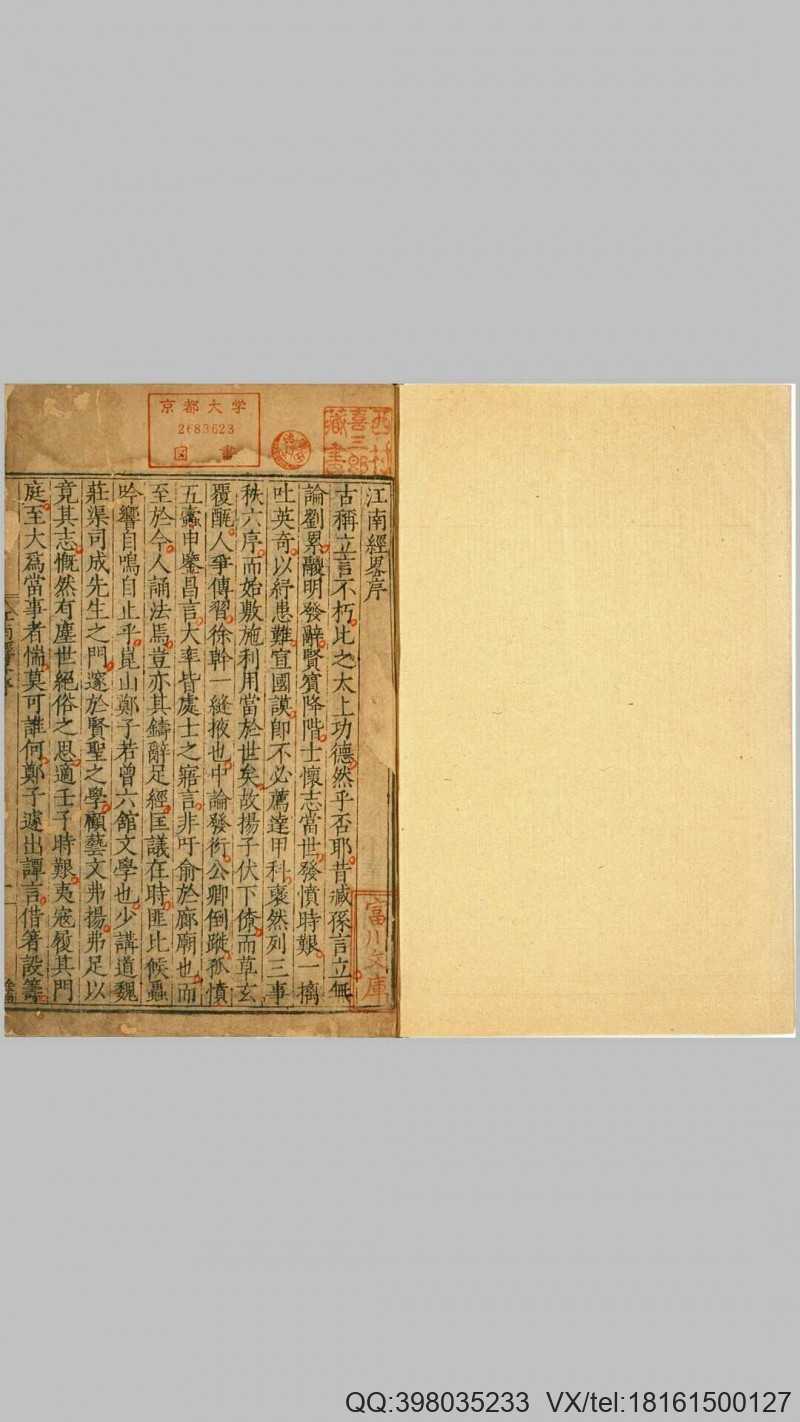 京都大学
2683623
図書
江南經畧序
古稱立言不朽比之太上功德然乎否耶昔臧孫言立無
論劉累鬷明發辭賢賓降階士懷志當世發憤時艱一摛
吐英奇以紓患難宣國謨卽不必薦逹甲科裒然列三事
秩六序而始敷施利用當於世矣故揚子伏下僚而草玄
覆醯人爭傳習徐幹一縫掖也中論發衒公卿倒蹤孤憤
五蠹申鑒昌言大率皆處士之寤言非吁俞於廊廟也而
至於今人誦法焉豈亦其鑄辭足經匡議在時匪比候蟲
吟響自鳴自止乎崑山鄭子若曾六館文學也少講道魏
莊渠司成先生之門邃於賢聖之學顧藝文弗揚弗足以
竟其志慨然有塵世絕俗之思適壬子時艱夷寇履其門
庭至大爲當事者惴莫可誰何鄭子遽出譚言借箸設籌
富川文庫
QQ:398035233 VX/tel:18161500127